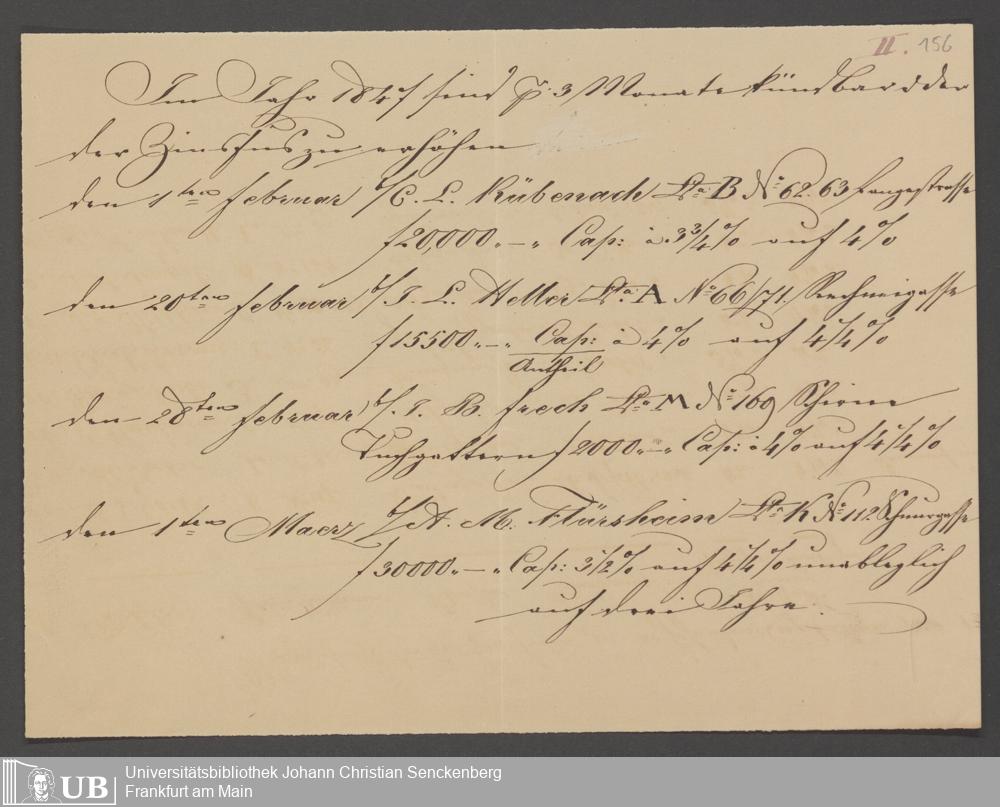 II. 156
Im Jahr 1847 sind p. 3 Monate kündbar oder
der Zinsfus zu erhöhen
den 1ten Februar b/ C. L. Rübenach Lta. B No. 62. 63 Langestrasse
f 20,000.-" Cap: à 3 3/4 % auf 4 %
den 20ten Februar b/ J. L. Heller Lta. A No. 66/71. Rechneigasse
f 15500.-" Cap: à 4 % auf 4 1/4 %
Antheil
den 28ten Februar b/ J. B. Frech Lta. M No. 169 Schirne
Tuchgattern f 2000.-" Cap: à 4 % auf 4 1/4 %
den 1ten Maerz b/ A. M. Flürsheim Lta. K No. 112 Schnurgasse
f 30000.-" Cap: 3 1/2 % auf 4 1/4 % unableglich
auf drei Jahre.
UB
Universitätsbibliothek Johann Christian Senckenberg
Frankfurt am Main